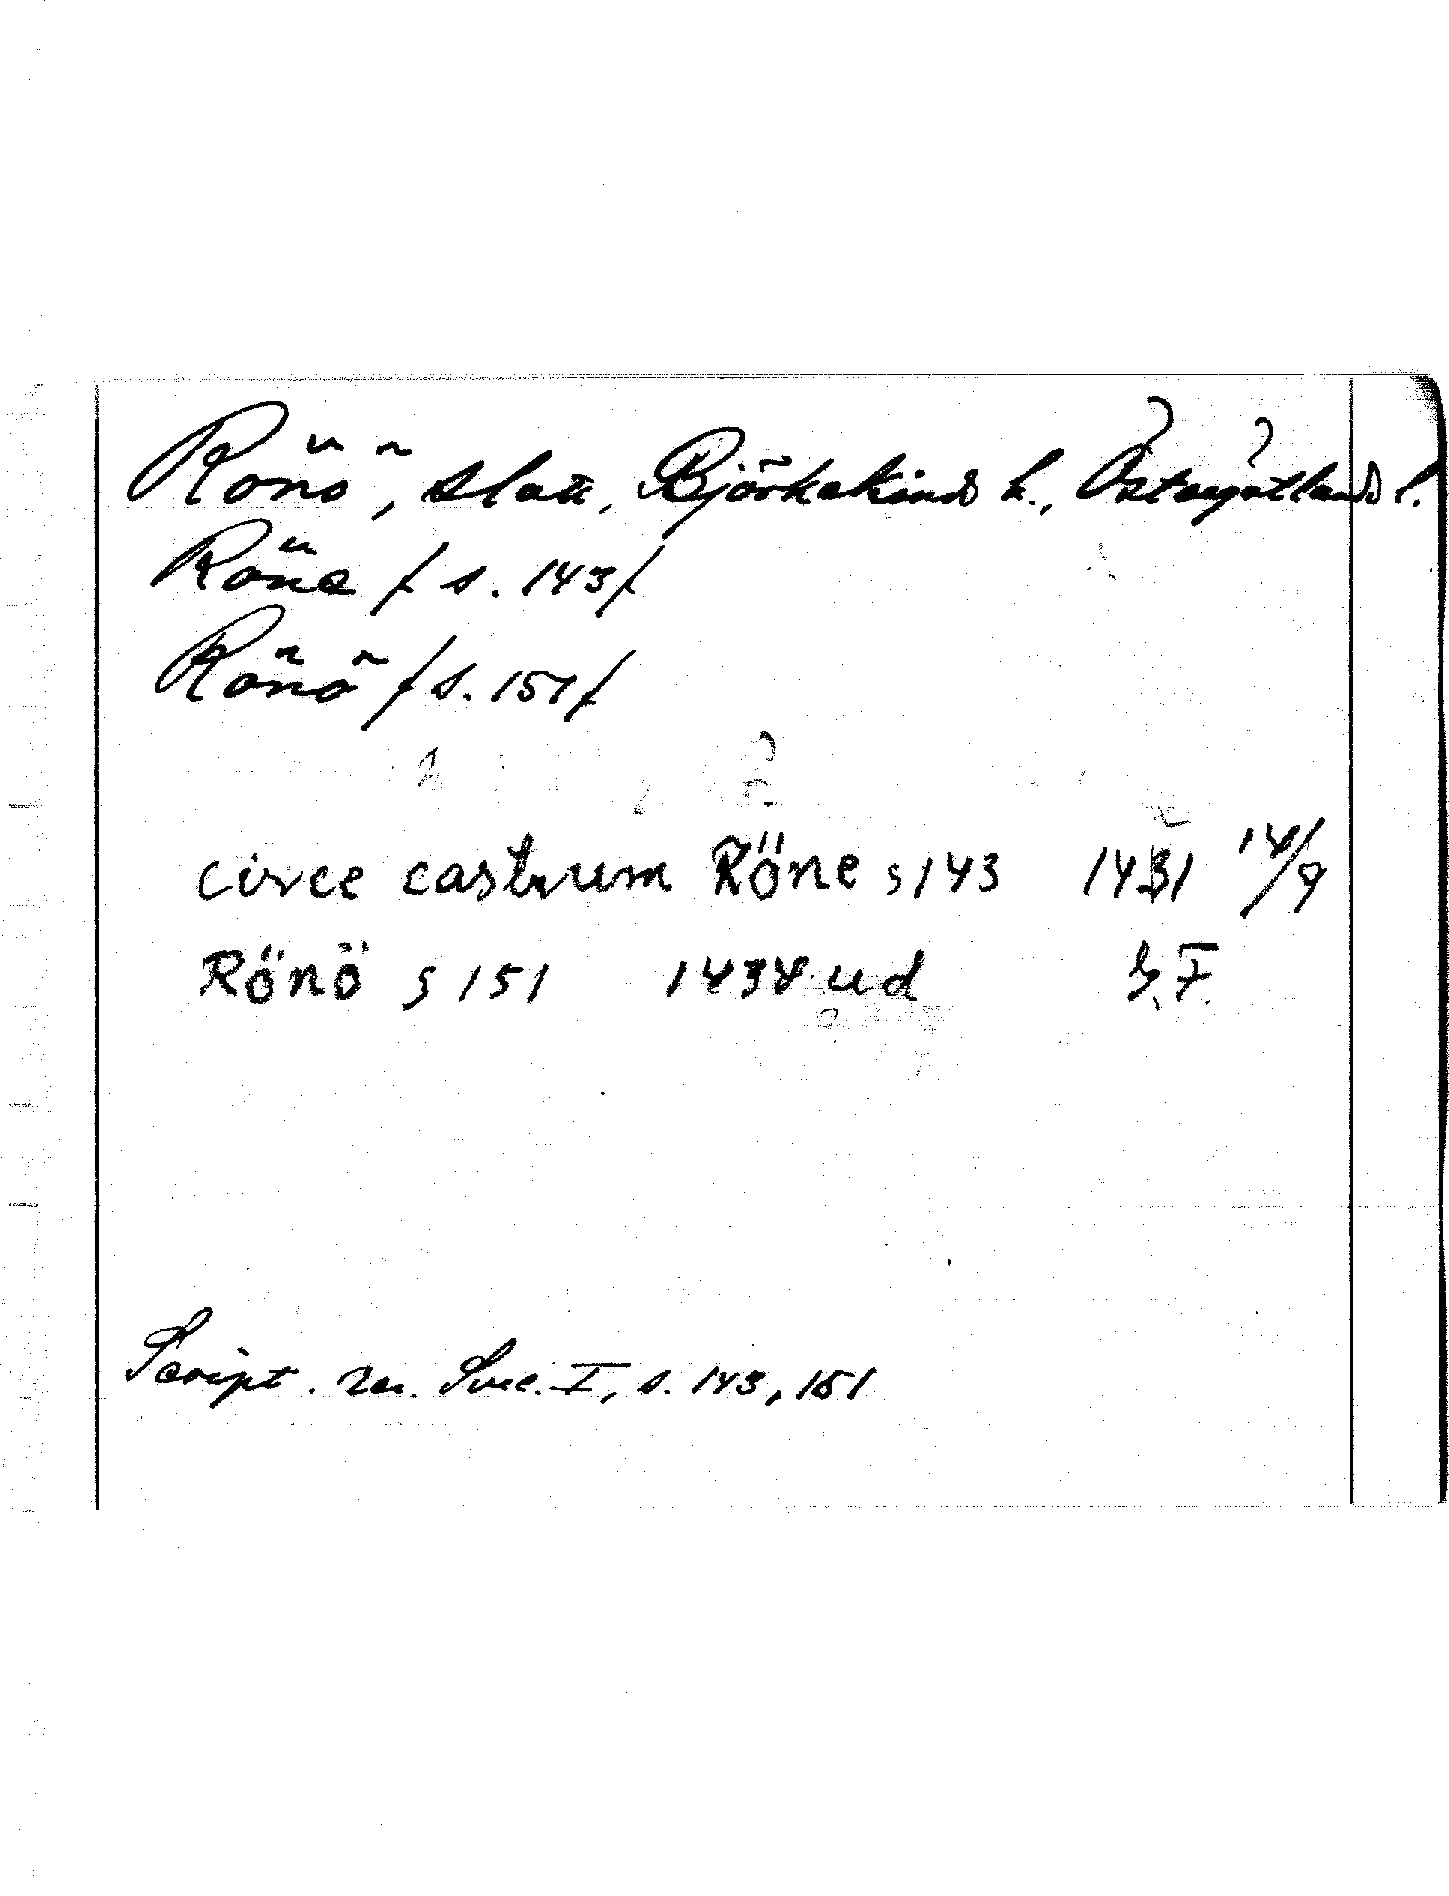 Rönö, slott, Björkekinds h., Östergötlands l.
Röne / s. 143/
Rönö / s. 151/
circe castrum Röne s 143 1431 14/9
Rönö s 151 1434 ud
Script. rer. Svec. I, s. 143, 151